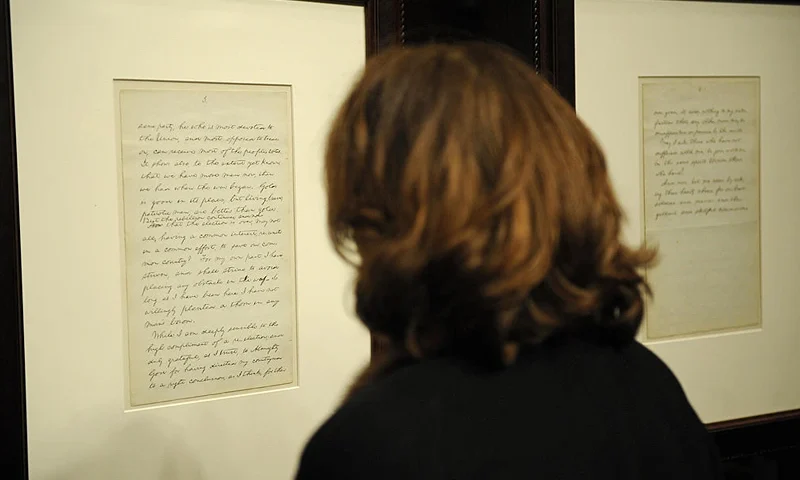 3.
same party, he who is most devoted to
the Union, and most opposed to treason
can receive most of the people's votes.
It shows also to the extent yet known
that we have more men now, than
we had when the war began. Gold
is good in its place; but living, brave,
patriotic men, are better than gold.
But the rebellion continues; and
now that the election is over, may not
all, having a common interest, re-unite
in a common effort, to save our com-
mon country? For my own part I have
striven, and shall strive to avoid
placing any obstacle in the way. So
long as I have been here I have not
willingly planted a thorn in any
man's bosom.
While I am deeply sensible to the
high compliment of a re-election; and
duly grateful, as I trust, to Almighty
God for having directed my countrymen
to a right conclusion, as I think, for their
own good, it adds nothing to my satis-
faction that any other man may be
disappointed or pained by the result.
May I ask those who have not
differed with me, to join with me,
in this same spirit towards those
who have?
And now, let me close by ask-
ing three hearty cheers for our brave
soldiers and seamen and their
gallant and skilful commanders.